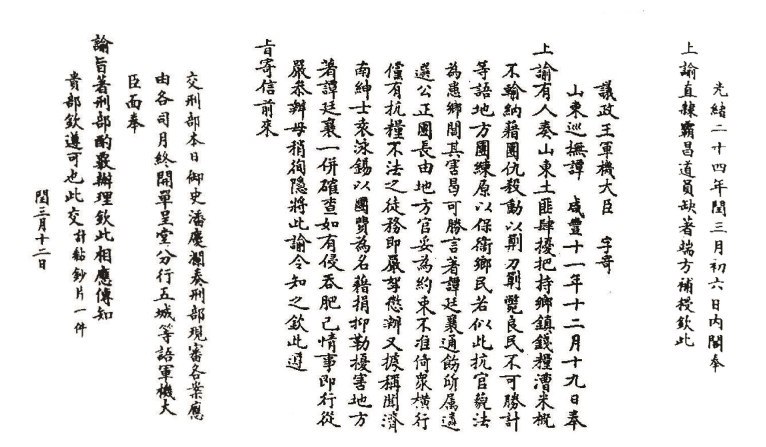 光緒二十四年閏三月初六日內閣奉
上諭直隸霸昌道員缺著端方補授欽此
議政王軍機大臣 字寄
山東巡撫譚 咸豐十一年十二月十九日奉
上諭有人奏山東土匪肆擾把持鄉鎮錢糧漕米概
不輸納藉團仇殺動以剃刀剃斃良民不可勝計
等語地方團練原以保衛鄉民若似此抗官藐法
為患鄉閭其害曷可勝言著譚廷襄通飭所屬遴
選公正團長由地方官妥為約束不准倚眾橫行
儻有抗糧不法之徒務即嚴拏懲辦又據稱聞濟
南紳士袁泳錫以團費為名藉捐抑勒擾害地方
著譚廷襄一併確查如有侵吞肥己情事即行從
嚴參辦毋稍徇隱將此諭令知之欽此遵
旨寄信前來
交刑部本日御史潘慶瀾奏刑部現審各案應
由各司月終開單呈堂分行五城等語軍機大
臣面奉
諭旨著刑部酌覈辦理欽此相應傳知
貴部欽遵可也此交 計黏鈔片一件
閏三月十二日